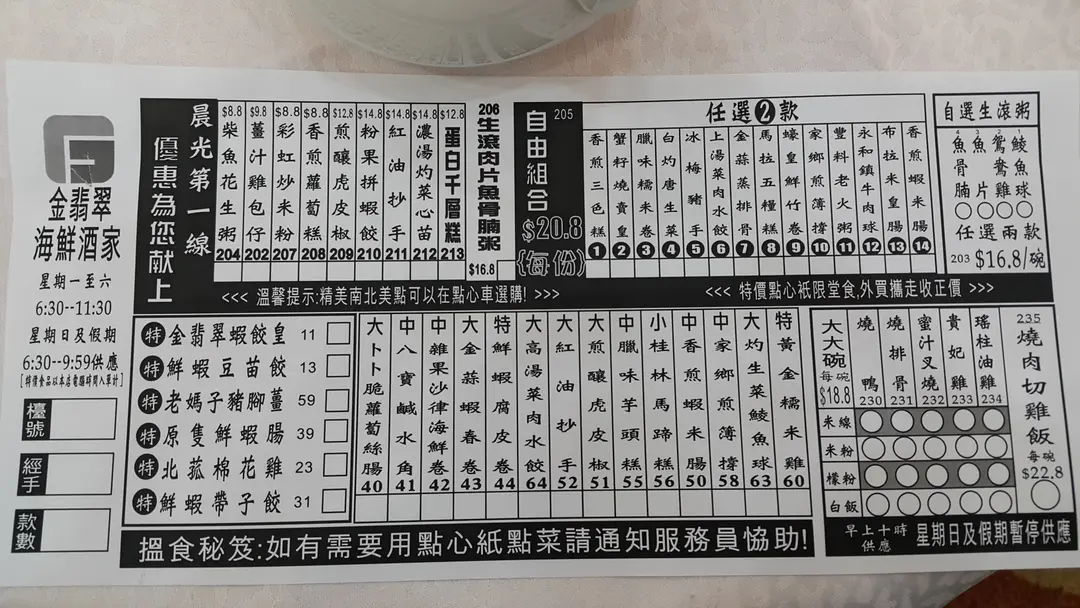 金翡翠
海鮮酒家
星期一至六
6:30--11:30
星期日及假期
6:30--9:59供應
[特價食品以本店電腦時間入單計]
檯號
經手
款數
晨光第一線
優惠為您献上
$8.8 柴魚花生粥 204
$9.8 薑汁雞包仔 202
$8.8 彩虹炒米粉 207
$8.8 香煎蘿蔔糕 208
$12.8 煎釀虎皮椒 209
$14.8 粉果拼蝦餃 210
$14.8 紅油抄手 211
$14.8 濃湯灼菜心苗 212
$12.8 蛋白千層糕 213
206 生滾肉片魚骨腩粥 $16.8
自由組合 205
$20.8
(每份)
任選2款
香煎三色糕 1
蟹籽燒賣皇 2
臘味糯米卷 3
白灼唐生菜 4
冰梅豬手 5
上湯菜肉水餃 6
金蒜蒸排骨 7
馬拉五糧糕 8
蠔皇鮮竹卷 9
家鄉煎薄撐 10
豐料老火粥 11
永和鎮牛肉球 12
布拉米皇腸 13
香煎蝦米腸 14
自選生滾粥
4 魚骨腩
3 魚片
2 鴛鴦雞
1 鯪魚球
任選兩款
203 $16.8/碗
<<< 溫馨提示:精美南北美點可以在點心車選購! >>>
<<< 特價點心衹限堂食,外買攜走收正價 >>>
特 金翡翠蝦餃皇 11
特 鮮蝦豆苗餃 13
特 老媽子豬腳薑 59
特 原隻鮮蝦腸 39
特 北菰棉花雞 23
特 鮮蝦帶子餃 31
大 卜卜脆蘿蔔絲腸 40
中 八寶鹹水角 41
中 雜果沙律海鮮卷 42
大 金蒜蝦春卷 43
特 鮮蝦腐皮卷 44
大 高湯菜肉水餃 64
大 紅油抄手 52
大 煎釀虎皮椒 51
中 臘味芋頭糕 55
小 桂林馬蹄糕 56
中 香煎蝦米腸 50
中 家鄉煎薄撐 58
大 灼生菜鯪魚球 63
特 黃金糯米雞 60
大大碗
每碗
$18.8
燒鴨 230
燒排骨 231
蜜汁叉燒 232
貴妃雞 233
瑤柱油雞 234
米線
米粉
檬粉
白飯
235
燒肉切雞飯
每碗
$22.8
早上十時供應
星期日及假期暫停供應
搵食秘笈:如有需要用點心紙點菜請通知服務員恊助!